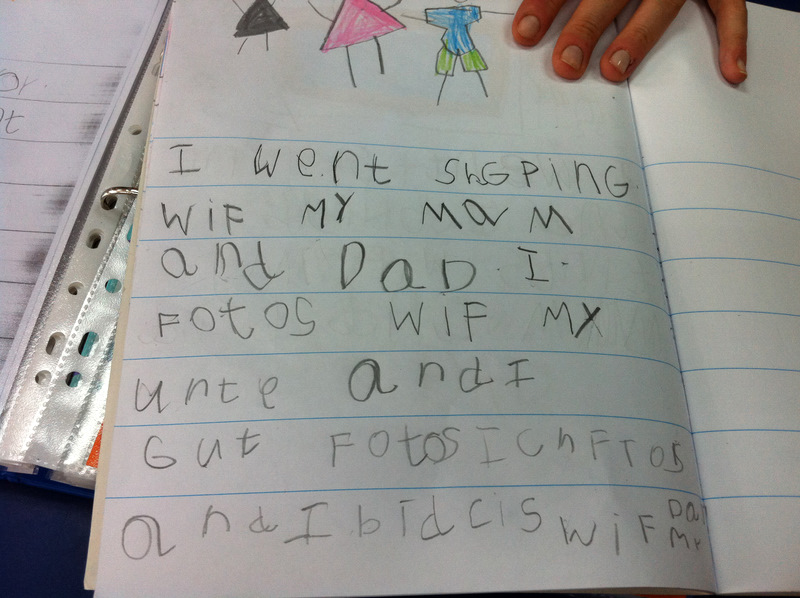 or.
I went ShGPiNG.
WiF MY MaM
and DaD. I.
FOtOS WiF MY
unte andI
Gut FOtOSICnFTOS
andIbidCiSWiF Dad
My